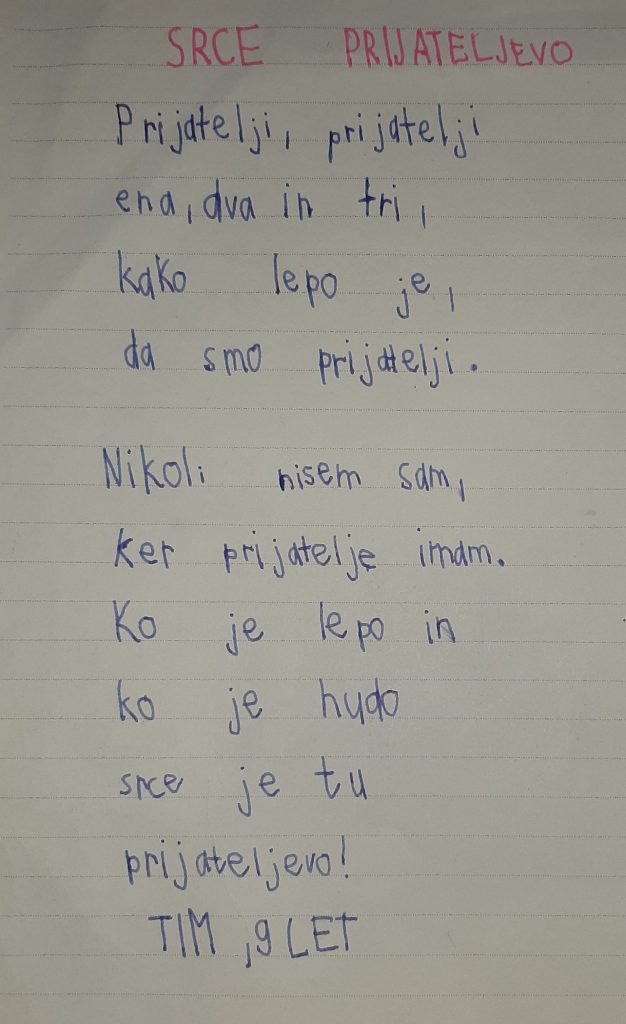 SRCE PRIJATELJEVO
Prijatelji, prijatelji
ena, dva in tri,
kako lepo je,
da smo prijatelji.
Nikoli nisem sam,
ker prijatelje imam.
Ko je lepo in
ko je hudo
srce je tu
prijateljevo!
TIM, 9 LET